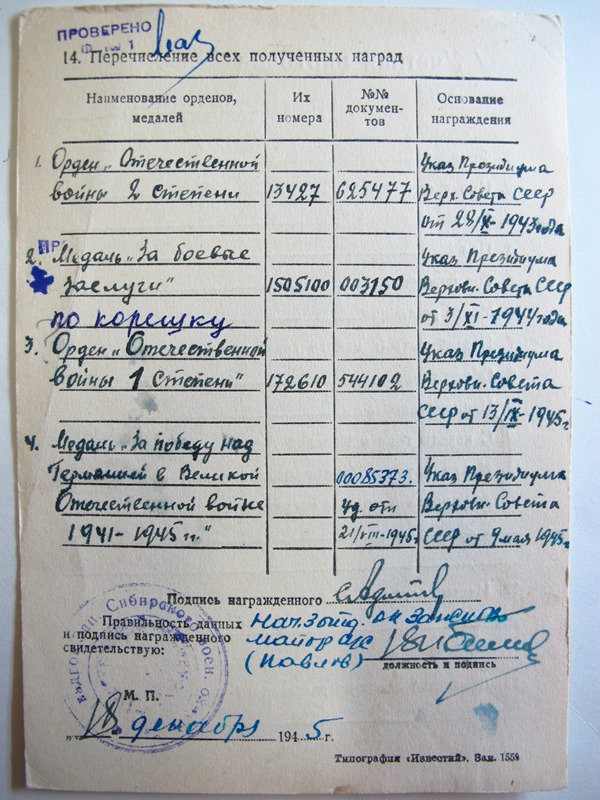 ПРОВЕРЕНО
14. Перечисление всех полученных наград
Наименование орденов, медалей | Их номера | №№ документов | Основание награждения
1. Орден „Отечественной | Указ Президиума
войны 2 степени | 13427 | 625477 | Верх. Совета СССР
от 28/X-1943 года
2. Медаль „За боевые | Указ Президиума
заслуги" | 1505100 | 003150 | Верховн. Совета СССР
по корешку | от 3/XI-1944 года
3. Орден „Отечественной | Указ Президиума
войны 1 степени" | 172610 | 544102 | Верховн. Совета
СССР от 13/IX-1945г
4. Медаль „За победу над
Германией в Великой | 0085373. | Указ Президиума
Отечественной войне | уд. от | Верховн. Совета
1941-1945 гг." | 21/VIII-1945г | СССР от 9 мая 1945г
Подпись награжденного
Правильность данных
и подпись награжденного
свидетельствую:
майор а/с
(Павлов)
должность и подпись
М. П.
„18" декабря 1945 г.
Типография «Известий». Зак. 1558